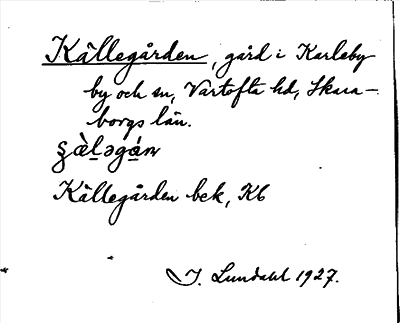 Källegården, gård i Karleby
by och sn, Vartofta hd, Skara-
borgs län.
Källegården bek, K6
J. Lundahl 1927.